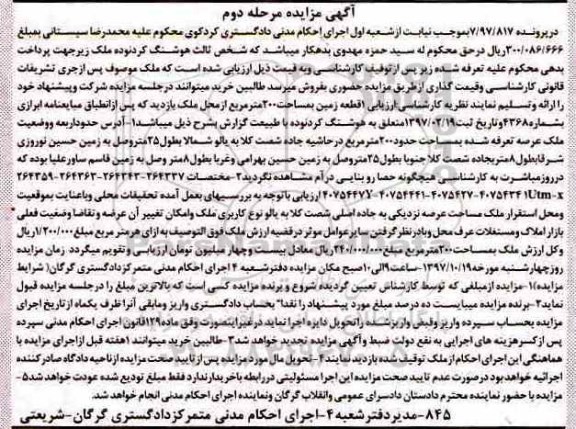 آگهی مزایده مرحله دوم
درپرونده ۷/۹۷/۸۱۷بموجب نیابت ازشعبه اول اجرای احکام مدنی دادگستری کردکوی محکوم علیه محمدرضا سیستانی بمبلغ
۳۰۰/۰۸۶/۶۶۶ریال درحق محکوم له سید حمزه مهدوی بدهکار میباشد که شخص ثالث هوشنگ کردنوده ملک زیرجهت پرداخت
بدهی محکوم علیه تعرفه شده زیر پس ازتوقیف کارشناسی وبه قیمت ذیل ارزیابی شده است که ملک موصوف پس ازجری تشریفات
قانونی کارشناسی وقیمت گذاری ازطریق مزایده حضوری بفروش میرسد طالبین خرید میتوانند درجلسه مزایده شرکت وپیشنهاد خود
را ارائه وتسلیم نمایند نظریه کارشناسی:ارزیابی ۱قطعه زمین بمساحت۳۰۰مترمربع ازمحل ملک بازدید که پس ازانطباق مبایعنامه ابرازی
بشماره۴۳۶۸وتاریخ ثبت۱۳۹۷/۰۲/۱۹متعلق به هوشنگ کردنوده با طبیعت گزارش بشرح ذیل میباشد۱-آدرس حدوداربعه ووضعیت
ملک عرصه تعرفه شده بمساحت حدود۲۰۰مترمربع درحاشیه جاده شصت کلا به یالو شمالا بطول۲۵متروصل به زمین حسین نوروزی
شرقابطول۸متربجاده شصت کلا جنوبا بطول۲۵متروصل به زمین حسین بهرامی وغربا بطول۸متر وصل به زمین قاسم ساورعلیا بوده که
درروزمباشرت به کارشناسی هیچگونه حصا رو بنایی درآم مشاهده نگردید۲-مختصات ۲۶۴۳۳۷-۲۶۴۳۴۳-۲۶۴۳۶۳-۲۶۴۳۵۹
Utm-x ۴۰۷۵۴۳۳۱-۴۰۷۵۴۳۷-۴۰۷۵۴۴۴۱-۴۰۷۵۴۴۷۷ ارزیابی باتوجه به بررسیهای بعمل آمده تحقیقات محلی وباعنایت بموقعیت
ومحل استقرار ملک مساحت عرصه نزدیکی به جاده اصلی شصت کلا به یالو نوع کاربری ملک وامکان تغییر آن عرضه وتقاضاوضعیت فعلی
بازار املاک ومستغلات عرف محل وبادرنظرگرفتن سایرعوامل موثر درقضیه ارزش ملک فوق التوصیف به ازای هرمتر مربع مبلغ۱/۲۰۰/۰۰۰ریال
وکل ارزش ملک بمساحت۲۰۰مترمربع مبلغ۲۴۰/۰۰۰/۰۰۰ریال معادل بیست وچهار میلیون تومان ارزیابی وتقویم میگردد .زمان مزایده
روزچهارشنبه مورخه۱۳۹۷/۱۰/۱۹-ساعت۹الی۱۰صبح مکان مزایده دفترشعبه ۴ اجرای احکام مدنی متمرکزدادگستری گرگان( شرایط
مزایده)۱-مزایده ازمبلغی که توسط کارشناس تعیین گردیده شروع و برنده مزایده کسی است که بالاترین مبلغ را درجلسه مزایده قبول
نماید۲-برنده مزایده میبایست ده درصد مبلغ مورد پیشنهاد را نقدا" بحساب دادگستری واریز ومابقی آنرا ظرف یکماه از تاریخ اجرای
مزایده بحساب سپرده واریز وفیش واریزشده راتحویل دایره اجرا نماید درغیراینصورت وفق ماده۱۲۹قانون اجرای احکام مدنی سپرده
پس ازکسرهزینه های اجرایی به نفع دولت ضبط وآگهی مزایده تجدید خواهد شد۳-طالبین خرید میتوانند ۱هفته قبل ازاجرای مزایده با
هماهنگی این اجرای احکام ازملک توقیف شده بازدید نمایند۴-تحویل مال مورد مزایده پس از تایید صحت مزایده ازناحیه دادگاه صادرکننده
اجرائیه خواهدبود درصورت عدم تایید صحت مزایده این اجرا مسئولیتی دررابطه باخریدارندارد فقط مبلغ تودیع شده عودت خواهد شد۵-
مزایده با حضور نماینده محترم دادستان دادسرای عمومی وانقلاب گرگان ونماینده اجرای احکام مدنی انجام خواهد شد.
۸۴۵-مدیردفترشعبه۴-اجرای احکام مدنی متمرکزدادگستری گرگان-شریعتی